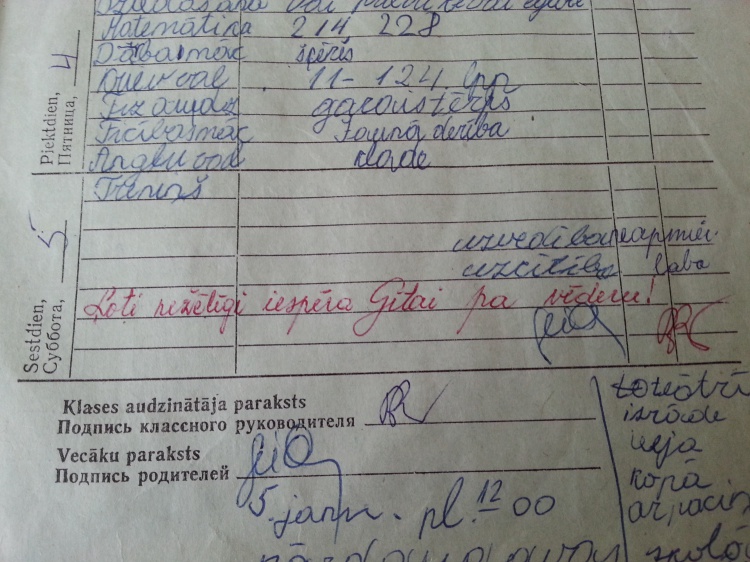 Matemātika 214 228
Dabasmāc šķēris
Krievval 11 - 124 lpp
Fizaudz garais tērps
Ticībasmāc Jaunā derība
Angļu val klade
Treniņš
Piektdien, 4
Пятница,
uzvedība neapmier.
uzcītība laba
Ļoti nežēlīgi iespēra Gitai pa vēderu!
Sestdien, 5
Суббота,
Klases audzinātāja paraksts
Подпись классного руководителя
Vecāku paraksts
Подпись родителей
5. janv. pl. 12 00
izrāde
kopā